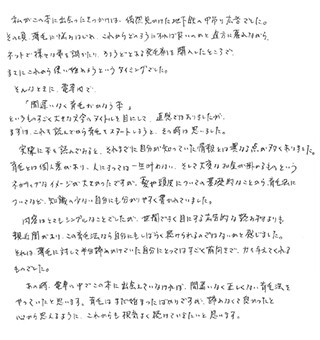 私がこの本に出会ったきっかけは、偶然見かけた地下鉄の中吊り広告でした。
その頃、薄毛に悩みはじめ、これからどのようにすれば良いのかと途方に暮れながら、
ネットで様々な事を調べたり、ちょうどとある発毛剤を購入したところで、
まさにこれから使い始めようというタイミングでした。
そんなときに、電車内で、
「間違いなく育毛
というものすごく大きな文字のタイトルを目にして、直感ではありましたが、
まずは、これを読んでから育毛をスタートしようと、その時は思いました。
実際に本を読んでみると、それまでに自分が知っていた情報とは異なる点が多くありました。
育毛とは個人差があり、人によっては一生叶わない、そして大変なお金が掛かるものという
ネガティブなイメージが大きかったですが、髪や頭皮についての基礎的なことから育毛法に
ついてなど、知識の少ない自分にも分かりやすく書かれていました。
内容はとてもシンプルなことでしたが、世間で多く目にする広告的な読み物よりも
親近感があり、この育毛法なら自分にもしばらく続けられるのではないかと感じました。
それは、薄毛に対して半分諦めかけていた自分にとってはすごく前向きで、力を与えてくれる
ものでした。
あの時、電車の中でこの本に出会っていなければ、間違いなく正しくない育毛法を
やっていたと思います。育毛はまだ始まったばかりですが、諦めなくて良かったと
心から思えるように、これからも根気よく続けていきたいと思います。